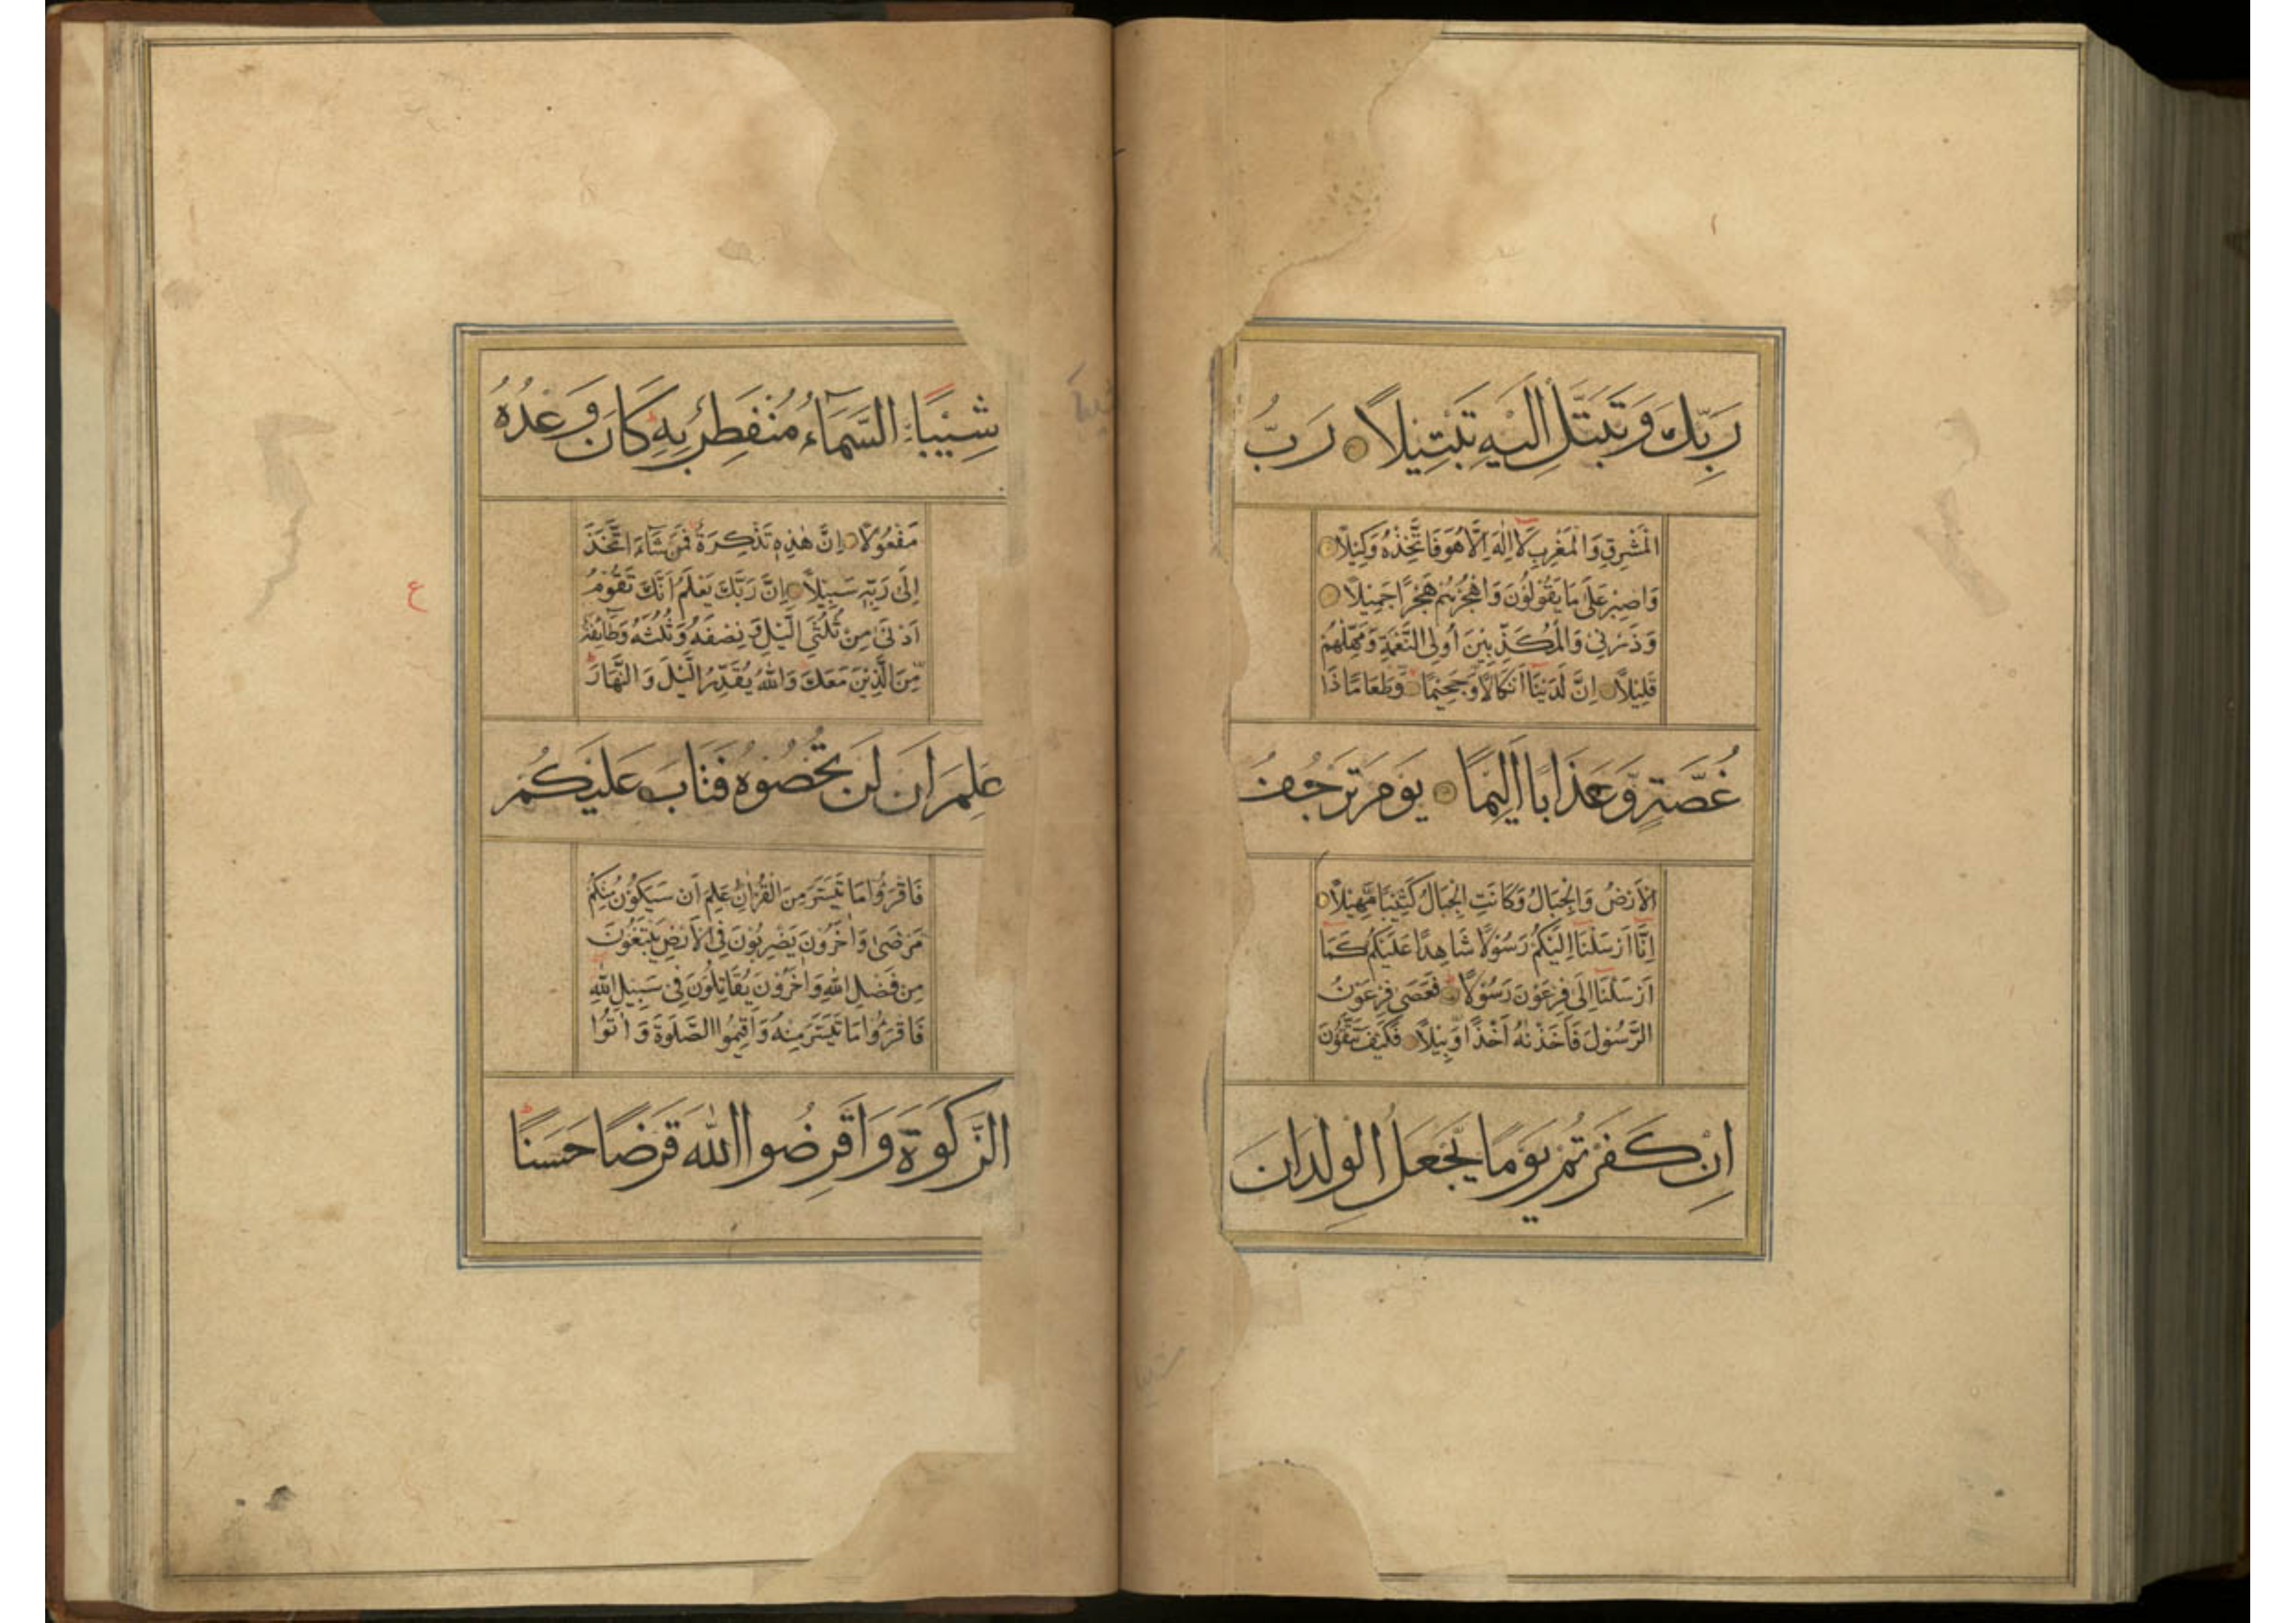 رَبِّكَ وَتَبَتَّلْ اِلَيْهِ تَبْتِيْلًا رَبُّ
الْمَشْرِقِ وَالْمَغْرِبِ لَا اِلٰهَ اِلَّا هُوَ فَاتَّخِذْهُ وَكِيْلًا
وَاصْبِرْ عَلٰى مَا يَقُوْلُوْنَ وَاهْجُرْهُمْ هَجْرًا جَمِيْلًا
وَذَرْنِيْ وَالْمُكَذِّبِيْنَ اُولِى النَّعْمَةِ وَمَهِّلْهُمْ
قَلِيْلًا اِنَّ لَدَيْنَا اَنْكَالًا وَّجَحِيْمًا وَطَعَامًا ذَا
غُصَّةٍ وَّعَذَابًا اَلِيْمًا يَوْمَ تَرْجُفُ
الْاَرْضُ وَالْجِبَالُ وَكَانَتِ الْجِبَالُ كَثِيْبًا مَّهِيْلًا
اِنَّا اَرْسَلْنَا اِلَيْكُمْ رَسُوْلًا شَاهِدًا عَلَيْكُمْ كَمَا
اَرْسَلْنَا اِلٰى فِرْعَوْنَ رَسُوْلًا فَعَصٰى فِرْعَوْنُ
الرَّسُوْلَ فَاَخَذْنٰهُ اَخْذًا وَّبِيْلًا فَكَيْفَ تَتَّقُوْنَ
اِنْ كَفَرْتُمْ يَوْمًا يَّجْعَلُ الْوِلْدَانَ
شِيْبًا السَّمَآءُ مُنْفَطِرٌ بِهٖ كَانَ وَعْدُهٗ
مَفْعُوْلًا اِنَّ هٰذِهٖ تَذْكِرَةٌ فَمَنْ شَآءَ اتَّخَذَ
اِلٰى رَبِّهٖ سَبِيْلًا اِنَّ رَبَّكَ يَعْلَمُ اَنَّكَ تَقُوْمُ
اَدْنٰى مِنْ ثُلُثَىِ الَّيْلِ وَنِصْفَهٗ وَثُلُثَهٗ وَطَآئِفَةٌ
مِّنَ الَّذِيْنَ مَعَكَ وَاللّٰهُ يُقَدِّرُ الَّيْلَ وَالنَّهَارَ
عَلِمَ اَنْ لَنْ تُحْصُوْهُ فَتَابَ عَلَيْكُمْ
فَاقْرَءُوْا مَا تَيَسَّرَ مِنَ الْقُرْاٰنِ عَلِمَ اَنْ سَيَكُوْنُ مِنْكُمْ
مَرْضٰى وَاٰخَرُوْنَ يَضْرِبُوْنَ فِى الْاَرْضِ يَبْتَغُوْنَ
مِنْ فَضْلِ اللّٰهِ وَاٰخَرُوْنَ يُقَاتِلُوْنَ فِىْ سَبِيْلِ اللّٰهِ
فَاقْرَءُوْا مَا تَيَسَّرَ مِنْهُ وَاَقِيْمُوا الصَّلٰوةَ وَاٰتُوا
الزَّكٰوةَ وَاَقْرِضُوا اللّٰهَ قَرْضًا حَسَنًا
ع